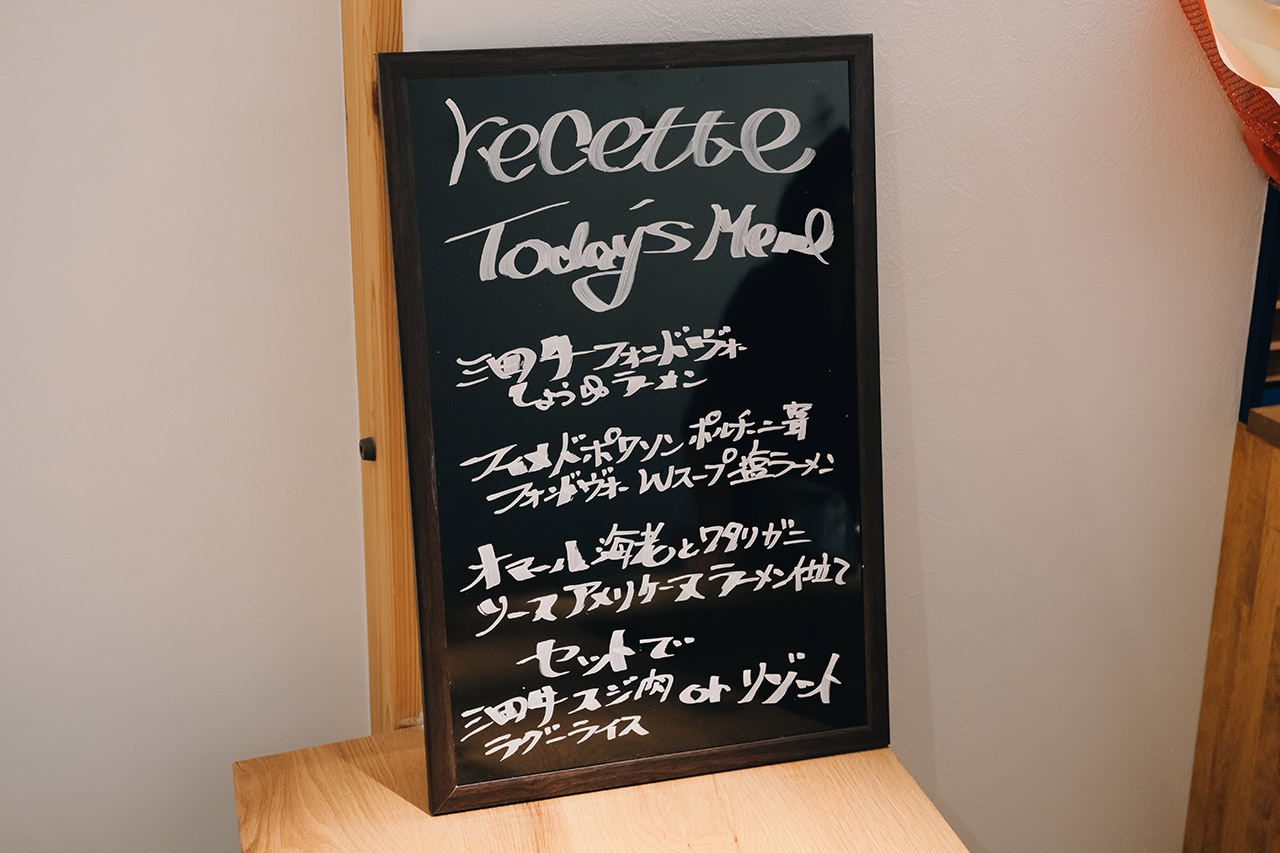 recette
Today's Menu
三田牛フォンドヴォー
しょうゆラーメン
フュメドポワソン ポルチーニ茸
フォンドヴォー Wスープ塩ラーメン
オマール海老とワタリガニ
ソースアメリケーヌラーメン仕立て
セットで
三田牛スジ肉 or リゾット
ラグーライス